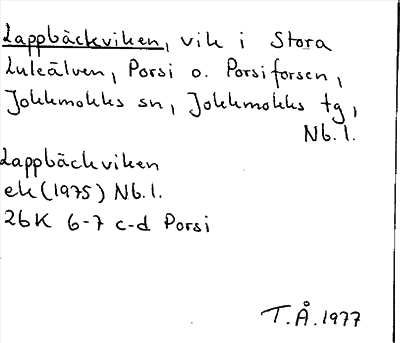 Lappbäckviken, vik i Stora
Luleälven, Porsi o. Porsiforsen,
Jokkmokks sn, Jokkmokks tg,
Nb. l.
Lappbäckviken
ek (1975) Nb. l.
26K 6-7 c-d Porsi
T.Å. 1977